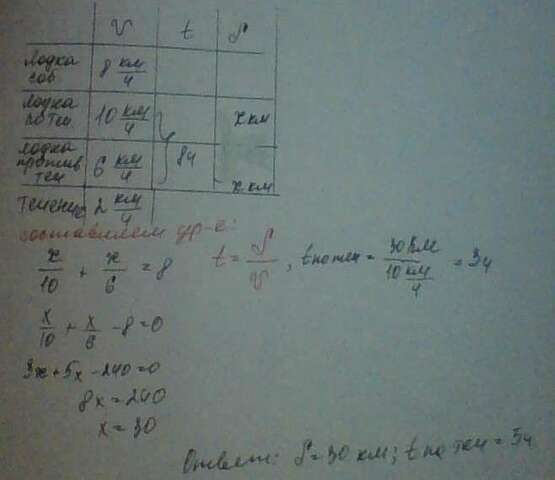 V t S
лодка соб. 8 км/ч
лодка по теч 10 км/ч x км
лодка против теч 6 км/ч 8ч x км
течение 2 км/ч
составляем ур-е:
x/10 + x/6 = 8 t = S/V, t по теч = 30 км / 10 км/ч = 3ч
x/10 + x/6 - 8 = 0
3x + 5x - 240 = 0
8x = 240
x = 30
Ответ: S = 30 км; t по теч = 3ч